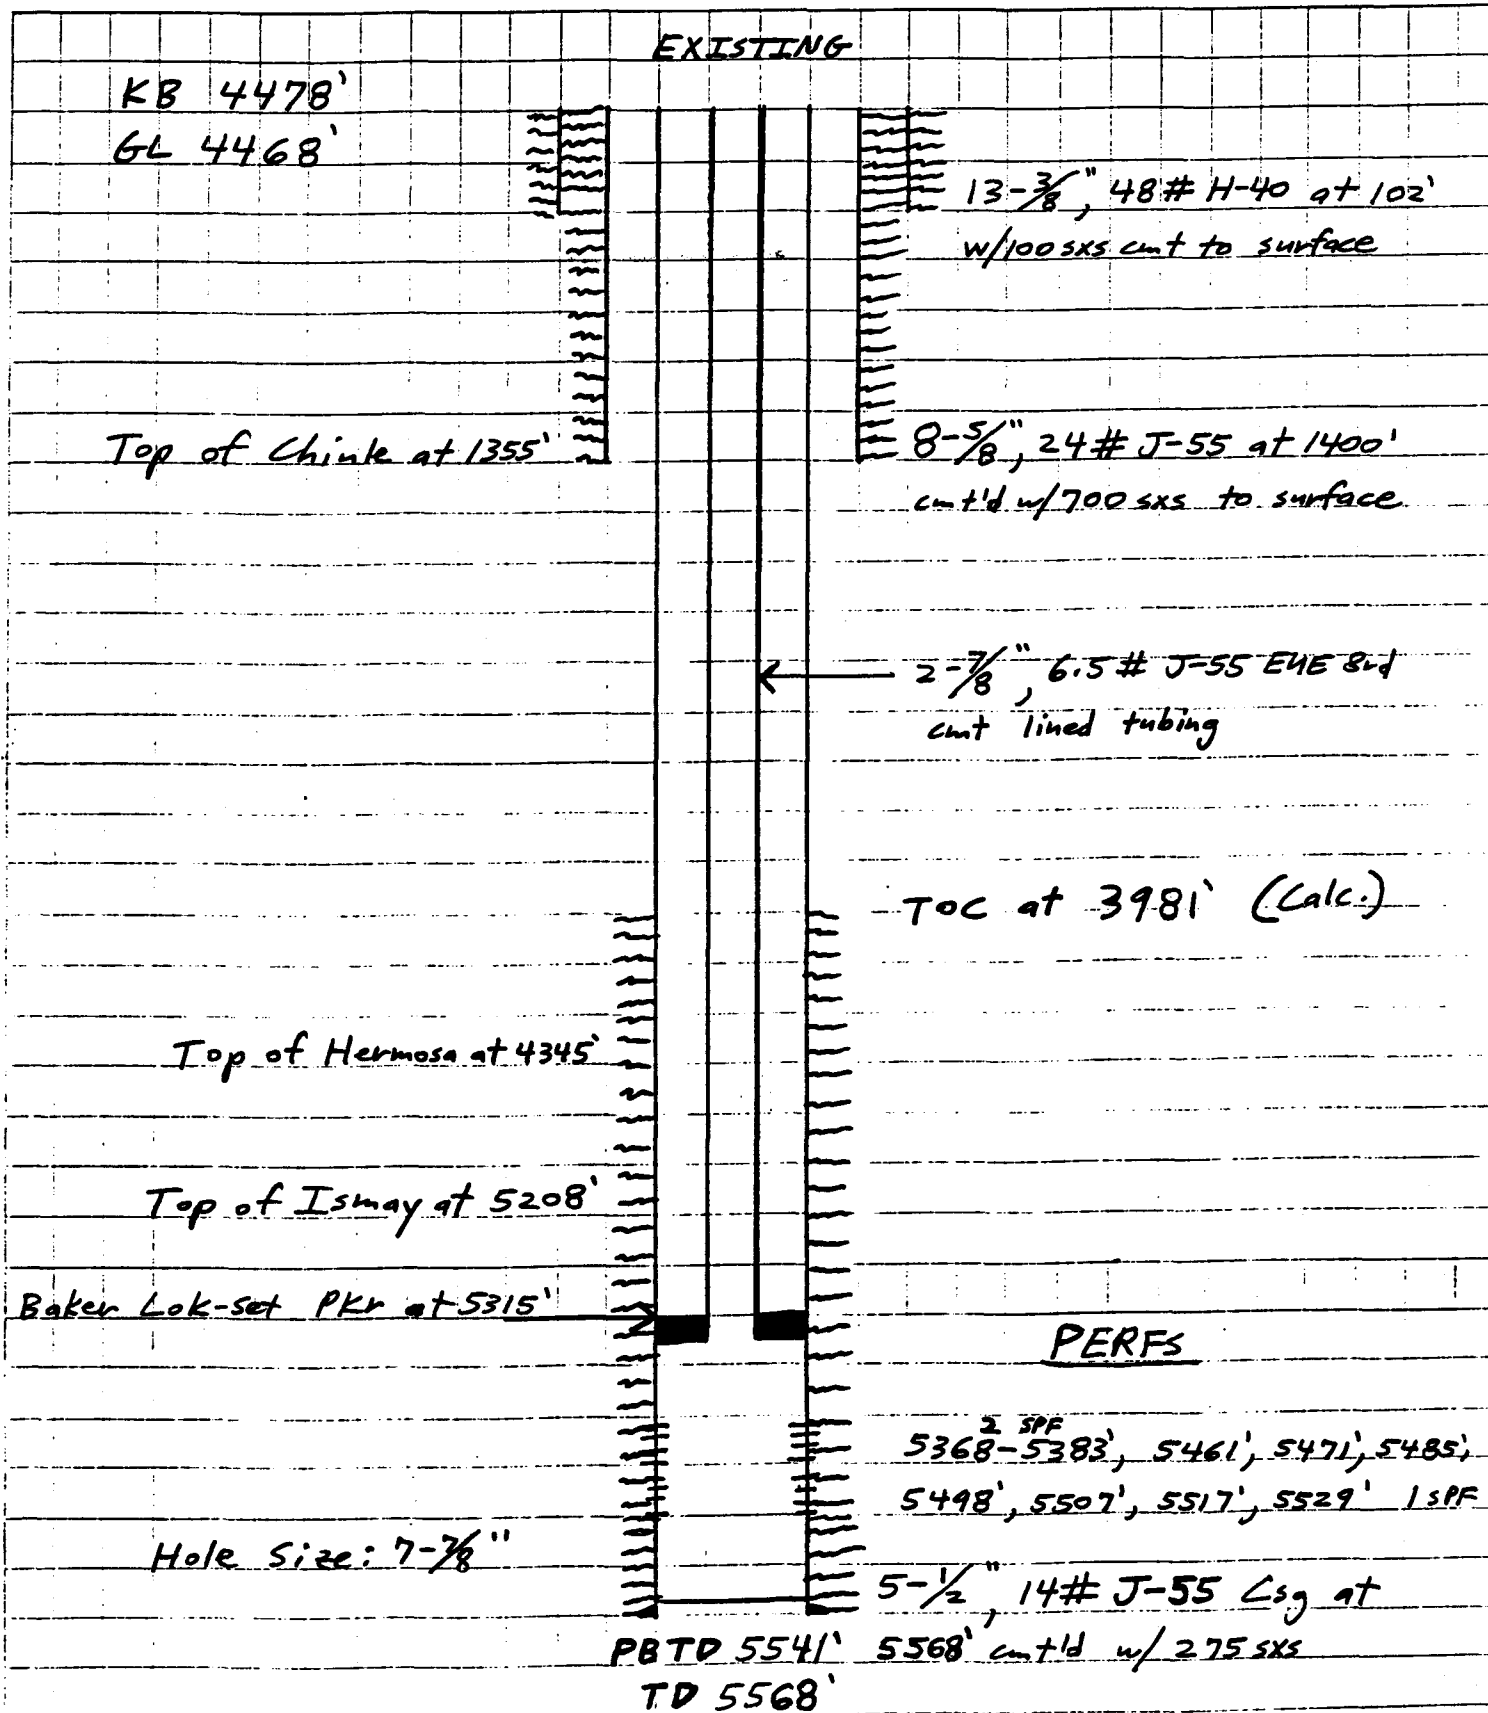 EXISTING
KB 4478'
GL 4468'
13-3/8", 48# H-40 at 102'
w/100 sxs cmt to surface
Top of Chinle at 1355'
8-5/8", 24# J-55 at 1400'
cmt'd w/700 sxs to surface
2-7/8", 6.5# J-55 EUE 8rd
cmt lined tubing
TOC at 3981' (Calc.)
Top of Hermosa at 4345'
Top of Ismay at 5208'
Baker Lok-set PKr at 5315'
PERFS
2 SPF
5368-5383', 5461', 5471', 5485',
5498', 5507', 5517', 5529' 1 SPF
Hole Size: 7-7/8"
5-1/2", 14# J-55 Csg at
5568' cmt'd w/ 275 sxs
PBTD 5541'
TD 5568'